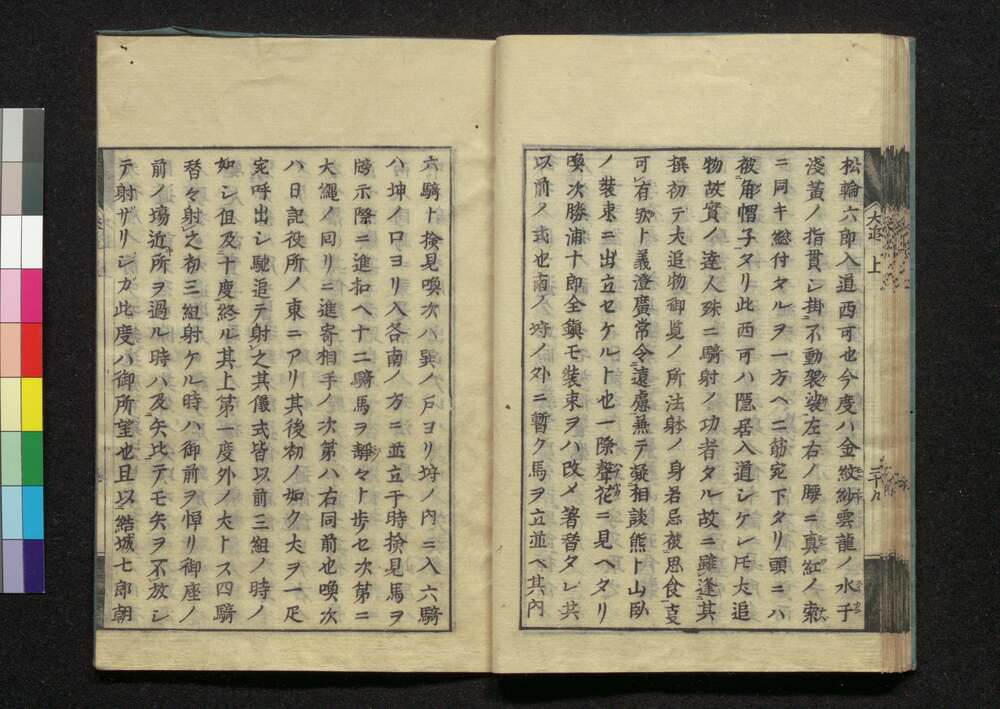 松輪六郎入道西可也今度ハ金紋紗雲龍ノ水子
淺黃ノ指貫シ掛不動袈裟左右ノ腰ニ真紅ノ索
ニ同キ總付タルヲ一方ヘ二筋宛下タリ頭ニハ
被角帽子タリ此西可ハ隠居入道シケレ𪜈犬追
物故實ノ達人殊ニ騎射ノ功者タル故ニ雖逢其
撰初テ犬追物御覧ノ所法躰ノ身若忌被思食支
可有歟ト義澄廣常令遠慮兼テ凝相談熊ト山臥
ノ裝束ニ出立セケルト也一際聲花ニ見ヘタリ
喚次勝浦十郎全鎮モ裝束ヲハ改メ箸替タレ共
以前ノ式也南ノ埒ノ外ニ暫ク馬ヲ立並ヘ其內
六騎ト検見喚次ハ巽ノ戸ヨリ埒ノ內ニ入六騎
ハ坤ノ口ヨリ入各南ノ方ニ並立于時検見馬ヲ
牓示際ニ進扣ヘ十二騎馬ヲ靜々ト歩セ次第ニ
大繩ノ囘リニ進寄相手ノ次第ハ右同前也喚次
ハ日記役所ノ東ニアリ其後初ノ如ク犬ヲ一疋
宛呼出シ馳追テ射之其儀式皆以前三組ノ時ノ
如シ但及十度終ル其上第一度外ノ犬トス四騎
替々射之初三組射ケル時ハ御前ヲ憚リ御座ノ
前ノ場近所ヲ過ル時ハ及矢比テモ矢ヲ不放シ
テ射リリシカ此度ハ御所望也且以結城七郎朝
犬追 上
三十九